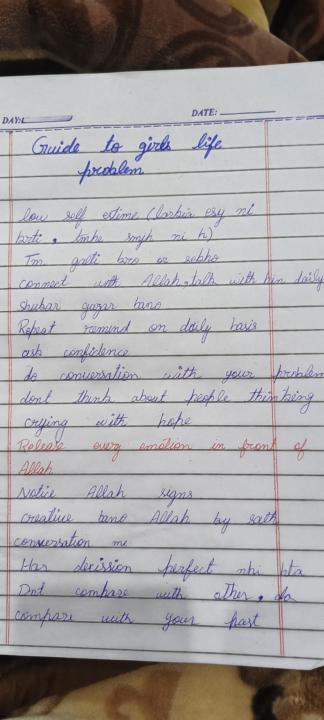 DAY:
DATE:
Guide to girls life
problem
low self estime (larkia esy ni
krti. tmhe smjh ni h)
Tm galti kro or sekho
connect with Allah, talk with him daily
Shukar guzar bano
Repeat remind on daily basis
ask confidence
do conversation with your problem
dont think about people thinking
crying with hope
Release every emotion in front of
Allah
Notice Allah signs
creative bano Allah ky sath
conversation me
Har decission perfect nhi hta
Dnt compare with other. do
compare with your past